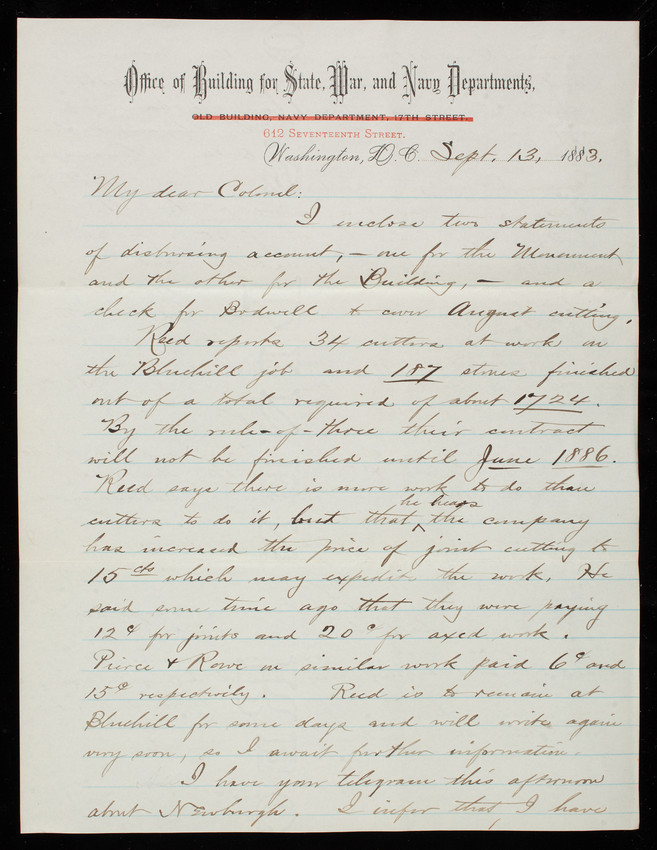 Office of Building for State, War, and Navy Departments,
OLD BUILDING, NAVY DEPARTMENT, 17TH STREET.
612 SEVENTEENTH STREET.
Washington, D.C. Sept. 13, 1883.
My dear Colonel:
I enclose two statements
of disbursing account, – one for the Monument
and the other for the Building, – and a
check for Bodwell to cover August cutting.
Reed reports 34 cutters at work on
the Bluehill job and 187 stones finished
out of a total required of about 1724.
By the rule-of-three their contract
will not be finished until June 1886.
Reed says there is more work to do than
he hears
cutters to do it, but that ^ the company
has increased the price of joint cutting to
15 cts which may expedite the work. He
said some time ago that they were paying
12¢ for joints and 20¢ for axed work.
Pierce & Rowe on similar work paid 6¢ and
15¢ respectively. Reed is to remain at
Bluehill for some days and will write again
very soon, so I await further information.
I have your telegram this afternoon
about Newburgh. I infer that, I have